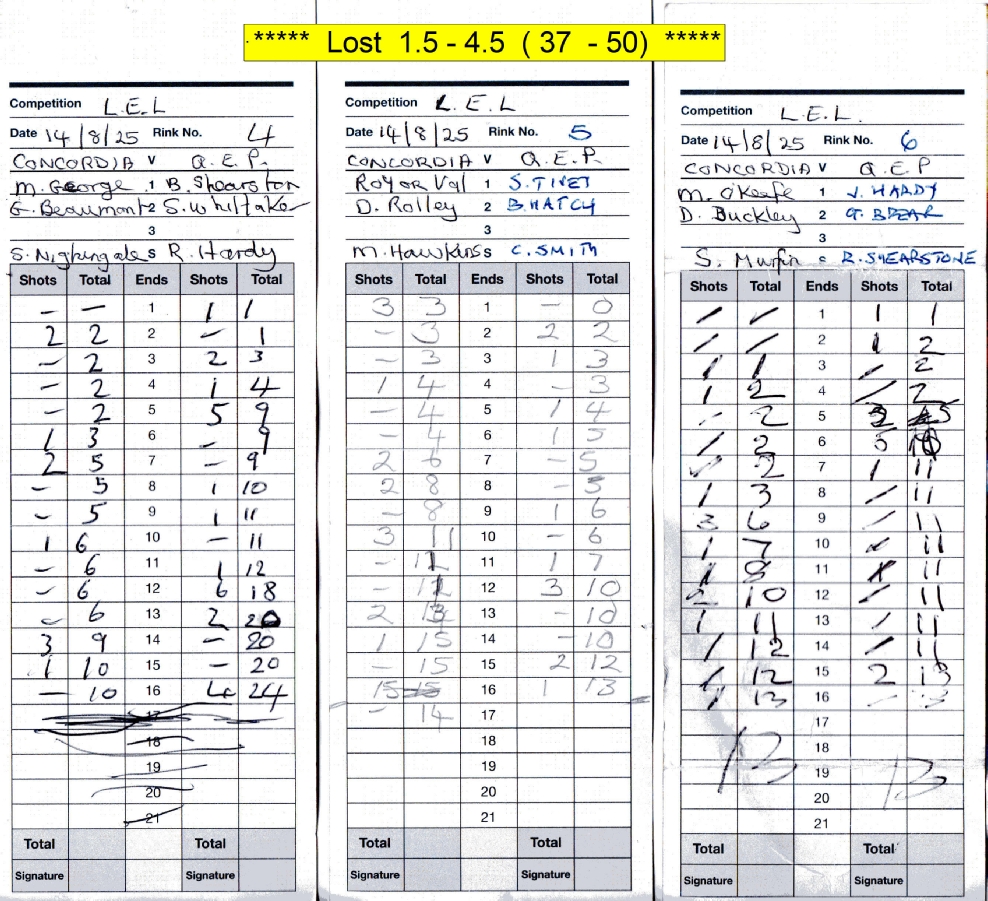 ***** Lost 1.5 - 4.5 ( 37 - 50) *****
Competition L.E.L
Date 14/8/25 Rink No. 4
CONCORDIA V Q.E.P.
M. George 1 B. Shearston
G. Beaumont 2 S. Whittake
3
S. Nightingale S R. Hardy
Shots Total Ends Shots Total
- - 1 1 1
2 2 2 - 1
- 2 3 2 3
- 2 4 1 4
- 2 5 5 9
1 3 6 - 9
2 5 7 - 9
- 5 8 1 10
- 5 9 1 11
1 6 10 - 11
- 6 11 1 12
- 6 12 6 18
- 6 13 2 20
3 9 14 - 20
1 10 15 - 20
- 10 16 4 24
17
18
19
20
21
Total Total
Signature Signature
Competition L.E.L
Date 14/8/25 Rink No. 5
CONCORDIA V Q.E.P.
Roy or Val 1 S. TIVET
D. Rolley 2 B. HATCH
3
M. Hawkins S C. SMITH
Shots Total Ends Shots Total
3 3 1 - 0
- 3 2 2 2
- 3 3 1 3
1 4 4 - 3
- 4 5 1 4
- 4 6 1 5
2 6 7 - 5
2 8 8 - 5
- 8 9 1 6
3 11 10 - 6
- 11 1 7
- 12 3 10
2 13 - 10
1 15 14 - 10
- 15 15 2 12
15 15 16 1 13
- 14 17
18
19
20
21
Total Total
Signature Signature
Competition L.E.L.
Date 14/8/25 Rink No. 6
CONCORDIA V Q.E.P
M. O'Keefe 1 J. HARDY
D. Buckley 2 G. BREAR
3
S. Murfin S R. SHEARSTONE
Shots Total Ends Shots Total
/ / 1 1 1
/ / 2 1 2
1 1 3 / 2
1 2 4 / 2
- 2 5 3 5
/ 2 6 5 10
/ 2 7 1 11
1 3 8 / 11
3 6 9 / 11
1 7 10 / 11
1 8 11 / 11
2 10 12 / 11
1 11 13 / 11
1 12 14 / 11
/ 12 15 2 13
1 13 16 - 13
17
18
13 19 13
20
21
Total Total
Signature Signature